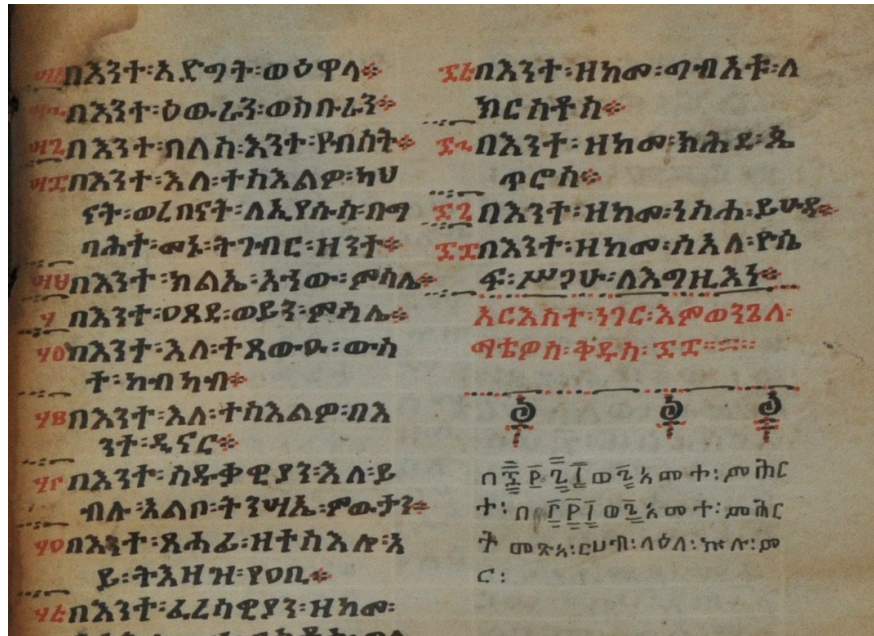 በእንተ፡እድግት፡ወዕዋላ፨
በእንተ፡ዕውራን፡ወስቡራን፨
በእንተ፡በለስ፡እንተ፡የብስት፨
በእንተ፡እለ፡ተስእልዎ፡ካህ
ናት፡ወረበናት፡ለኢየሱስ፡በማ
ባሕት፡መኑ፡ትገብር፡ዘንተ፨
በእንተ፡ክልኤ፡አኀው፡ምሳሌ፨
በእንተ፡ዐጸደ፡ወይን፡ምሳሌ፨
በእንተ፡እለ፡ተጸውዑ፡ውስ
ተ፡ከብካብ፨
በእንተ፡እለ፡ተስእልዎ፡በእ
ንተ፡ዲናር፨
በእንተ፡ስዱቃዊያን፡እለ፡ይ
ብሉ፡አልቦ፡ትንሣኤ፡ምውታን፨
በእንተ፡ጸሓፊ፡ዘተስእሎ፡አ
ይ፡ትእዛዝ፡የዐቢ፨
በእንተ፡ፈረሳዊያን፡ዘከመ፡
በእንተ፡ዘከመ፡ግብአቱ፡ለ
ክርስቶስ፨
በእንተ፡ዘከመ፡ክሕደ፡ጴ
ጥሮስ፨
፷፯ በእንተ፡ዘከመ፡ነስሐ፡ይሁዳ፨
በእንተ፡ዘከመ፡ስእለ፡ዮሴ
ፍ፡ሥጋሁ፡ለእግዚእነ፨
አርእስተ፡ነገር፡እምወንጌለ፡
ማቴዎስ፡ቅዱስ፡
ወ፯ አመተ፡ምሕር
ት፡በ ወ፯ አመተ፡ምሕር
ት መጽአ፡ርሀብ፡ላዕለ፡ኵሉ፡ም
ር፡